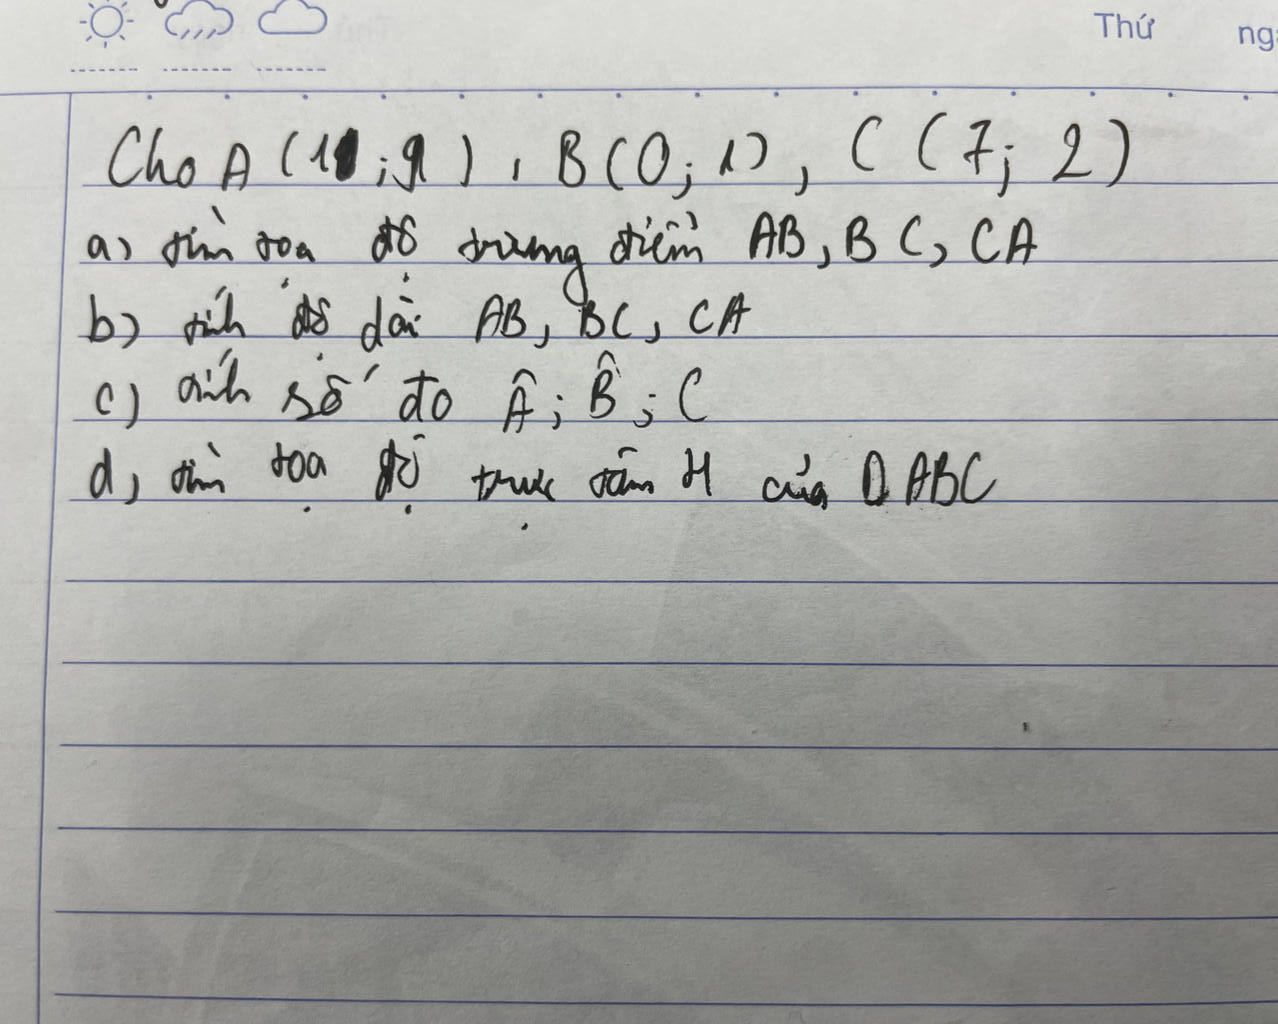 Thứ
Cho A (1 ; 9), B(0; 1), C (7; 2)
a) tìm tọa độ trung điểm AB, BC, CA
b) tính độ dài AB, BC, CA
c) tính số đo Â; B̂; C
d, tìm tọa độ trực tâm H của Δ ABC